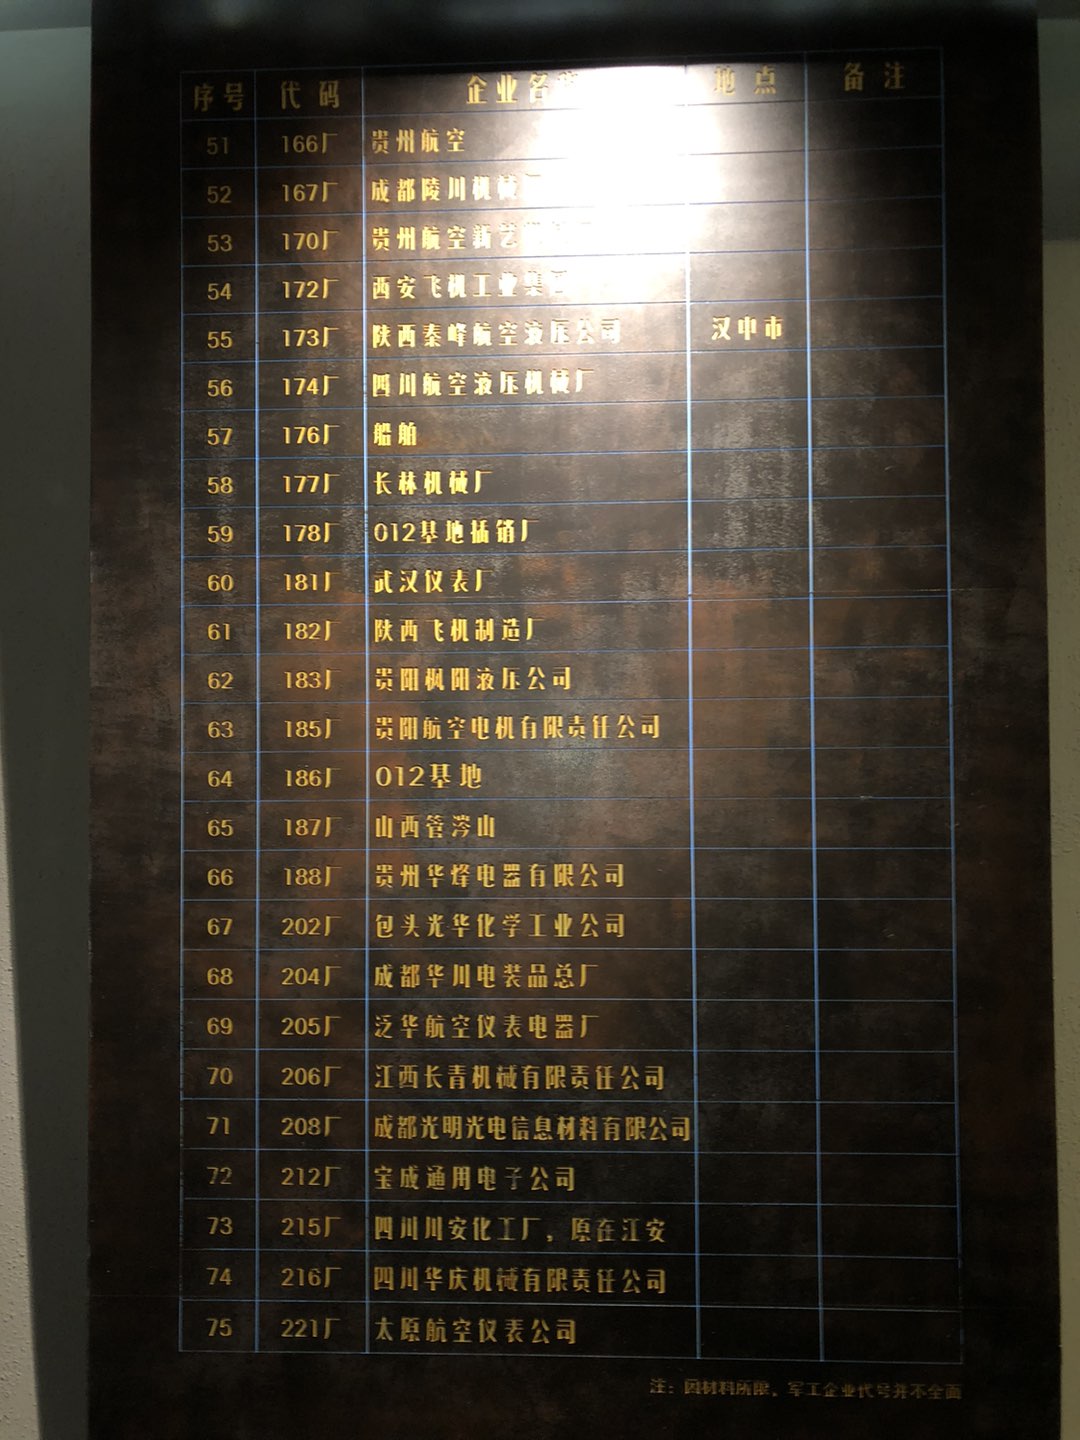 序号 代码 企业名 地点 备注
51 166厂 贵州航空
52 167厂 成都陵川机械厂
53 170厂 贵州航空新艺
54 172厂 西安飞机工业集团
55 173厂 陕西秦峰航空液压公司 汉中市
56 174厂 四川航空液压机械厂
57 176厂 船舶
58 177厂 长林机械厂
59 178厂 012基地插销厂
60 181厂 武汉仪表厂
61 182厂 陕西飞机制造厂
62 183厂 贵阳枫阳液压公司
63 185厂 贵阳航空电机有限责任公司
64 186厂 012基地
65 187厂 山西管涔山
66 188厂 贵州华烽电器有限公司
67 202厂 包头光华化学工业公司
68 204厂 成都华川电装品总厂
69 205厂 泛华航空仪表电器厂
70 206厂 江西长青机械有限责任公司
71 208厂 成都光明光电信息材料有限公司
72 212厂 宝成通用电子公司
73 215厂 四川川安化工厂，原在江安
74 216厂 四川华庆机械有限责任公司
75 221厂 太原航空仪表公司
注：因材料所限，军工企业代号并不全面